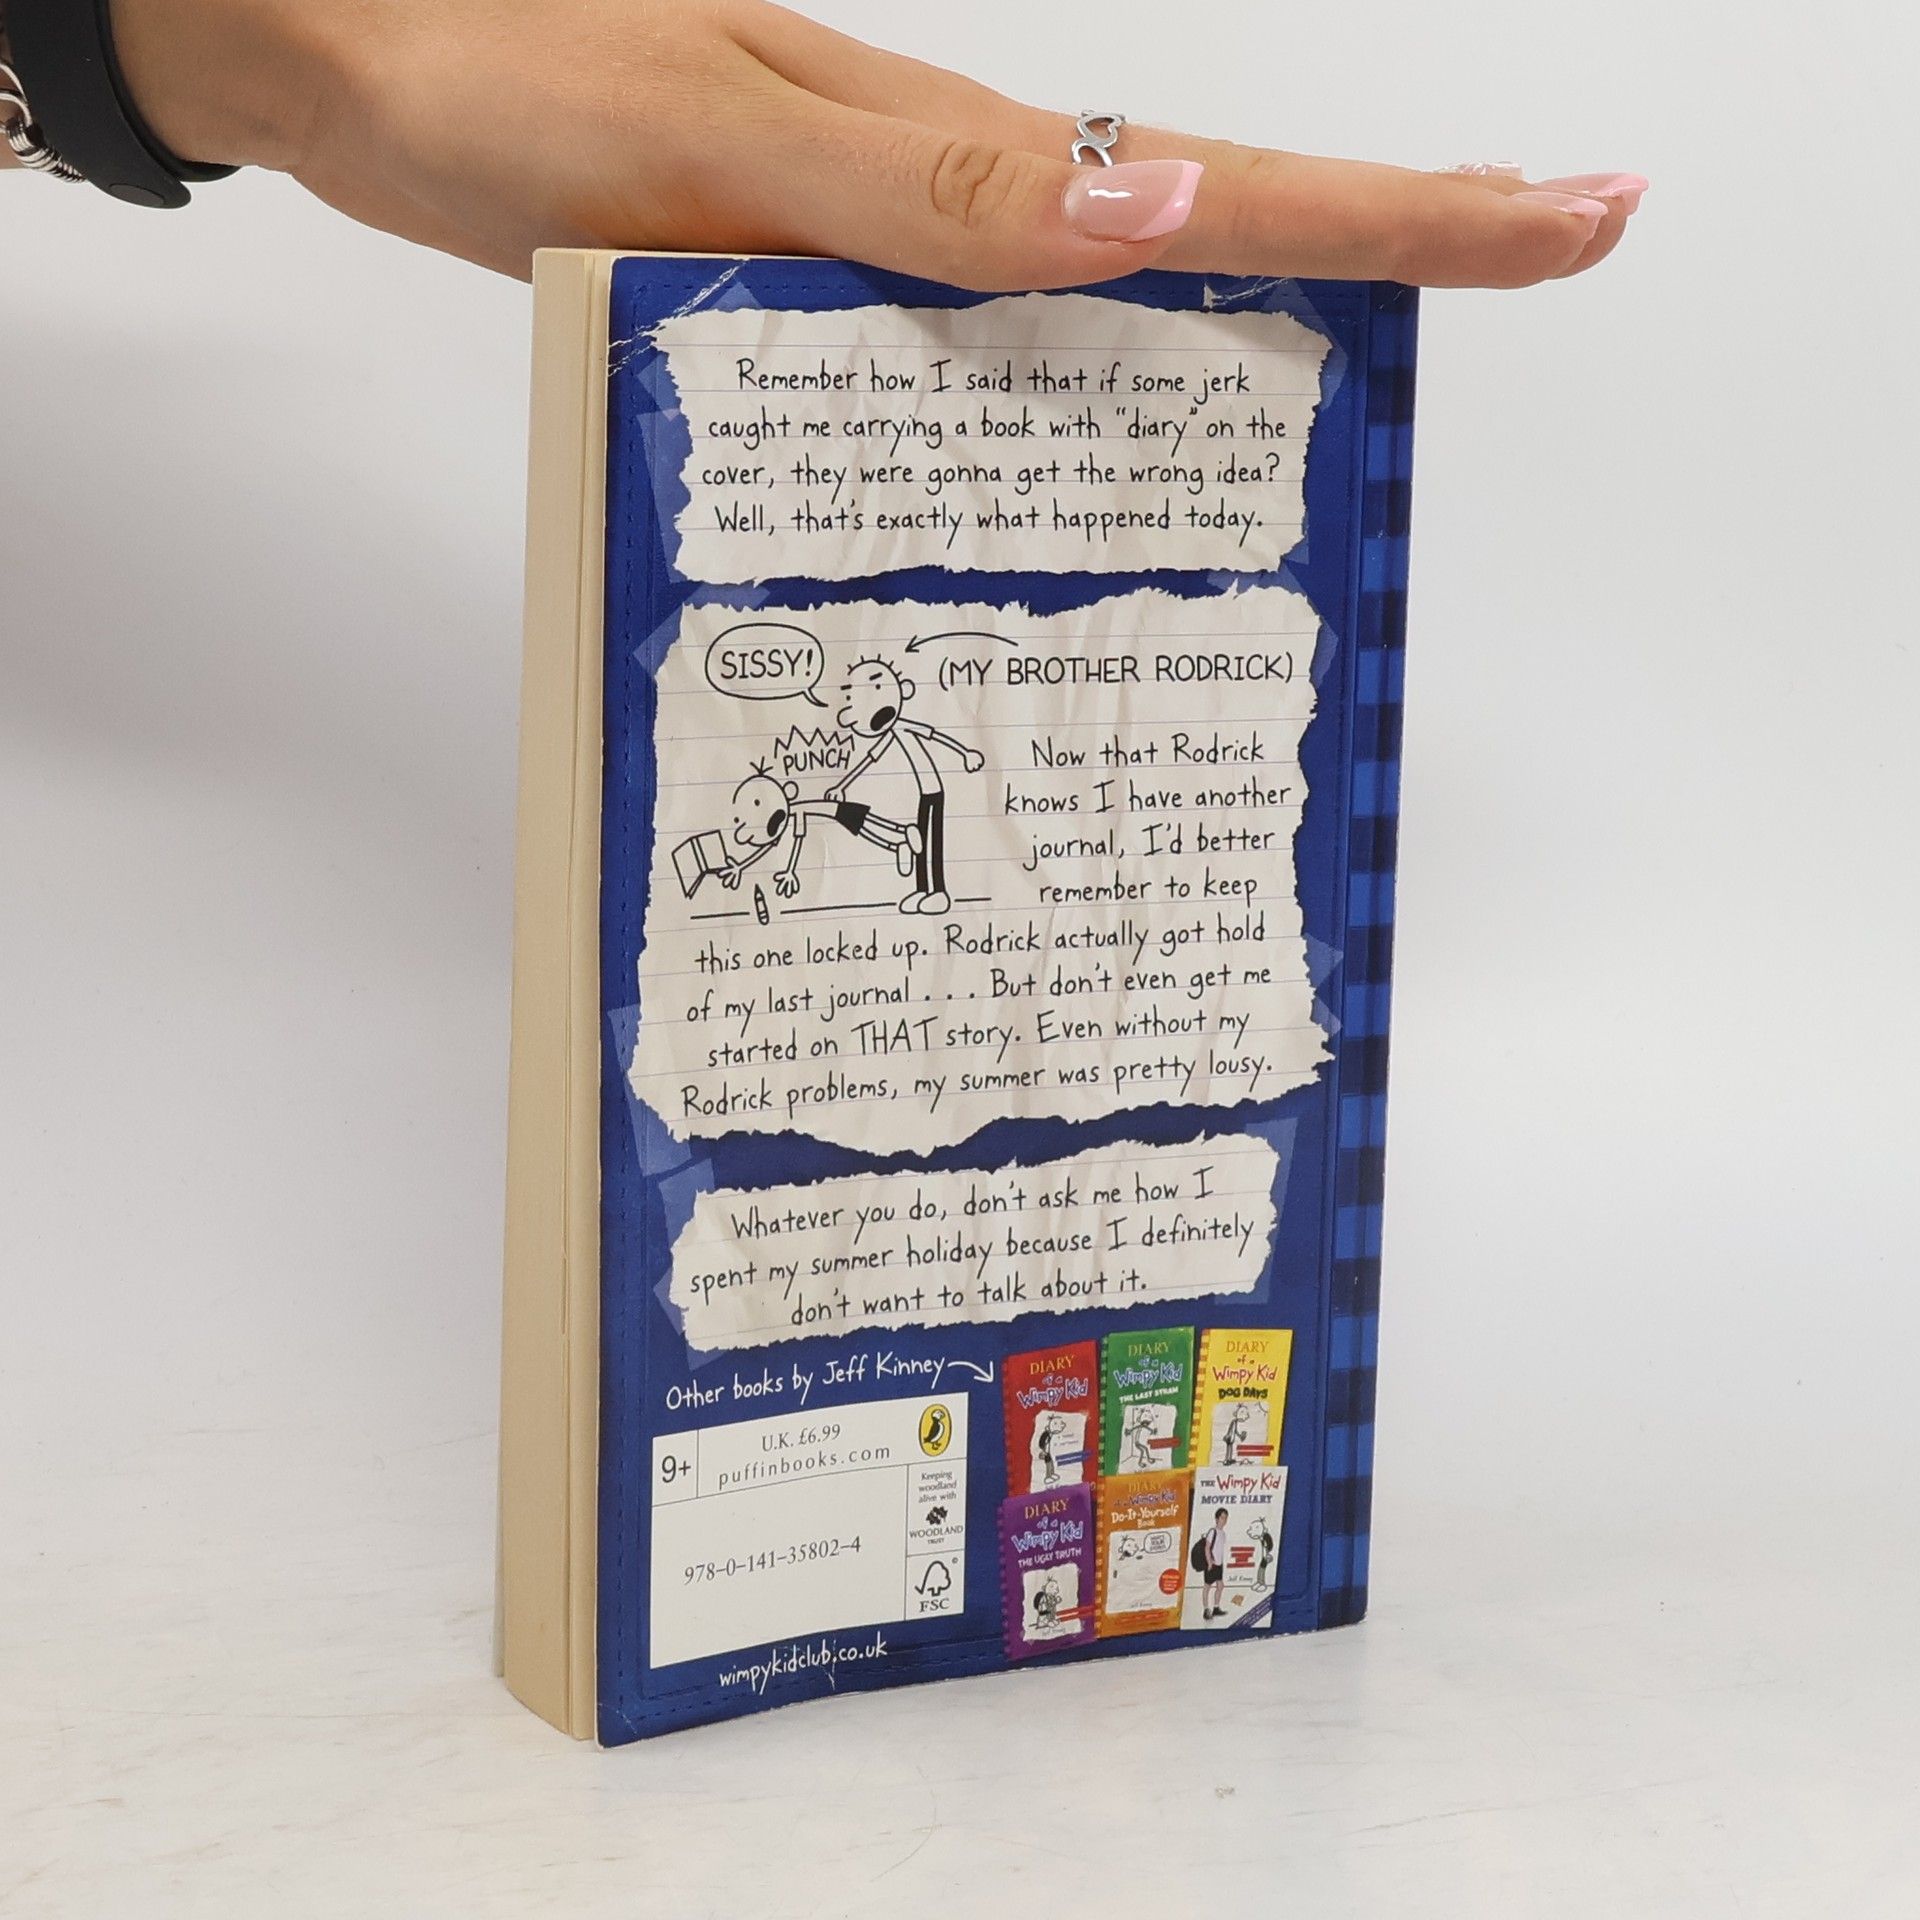 Remember how I said that if some jerk
caught me carrying a book with "diary" on the
cover, they were gonna get the wrong idea?
Well, that's exactly what happened today.
SISSY!
(MY BROTHER RODRICK)
PUNCH
Now that Rodrick
knows I have another
journal, I'd better
remember to keep
this one locked up. Rodrick actually got hold
of my last journal . . . But don't even get me
started on THAT story. Even without my
Rodrick problems, my summer was pretty lousy.
Whatever you do, don't ask me how I
spent my summer holiday because I definitely
don't want to talk about it.
Other books by Jeff Kinney
9+
U.K. £6.99
puffinbooks.com
978-0-141-35802-4
Keeping
woodland
alive with
WOODLAND
TRUST
FSC
wimpykidclub.co.uk
DIARY
of a
Wimpy Kid
DIARY
of a
Wimpy Kid
THE LAST STRAW
DIARY
of a
Wimpy Kid
DOG DAYS
DIARY
of a
Wimpy Kid
THE UGLY TRUTH
DIARY
of a Wimpy Kid
Do-It-Yourself
Book
THE Wimpy Kid
MOVIE DIARY